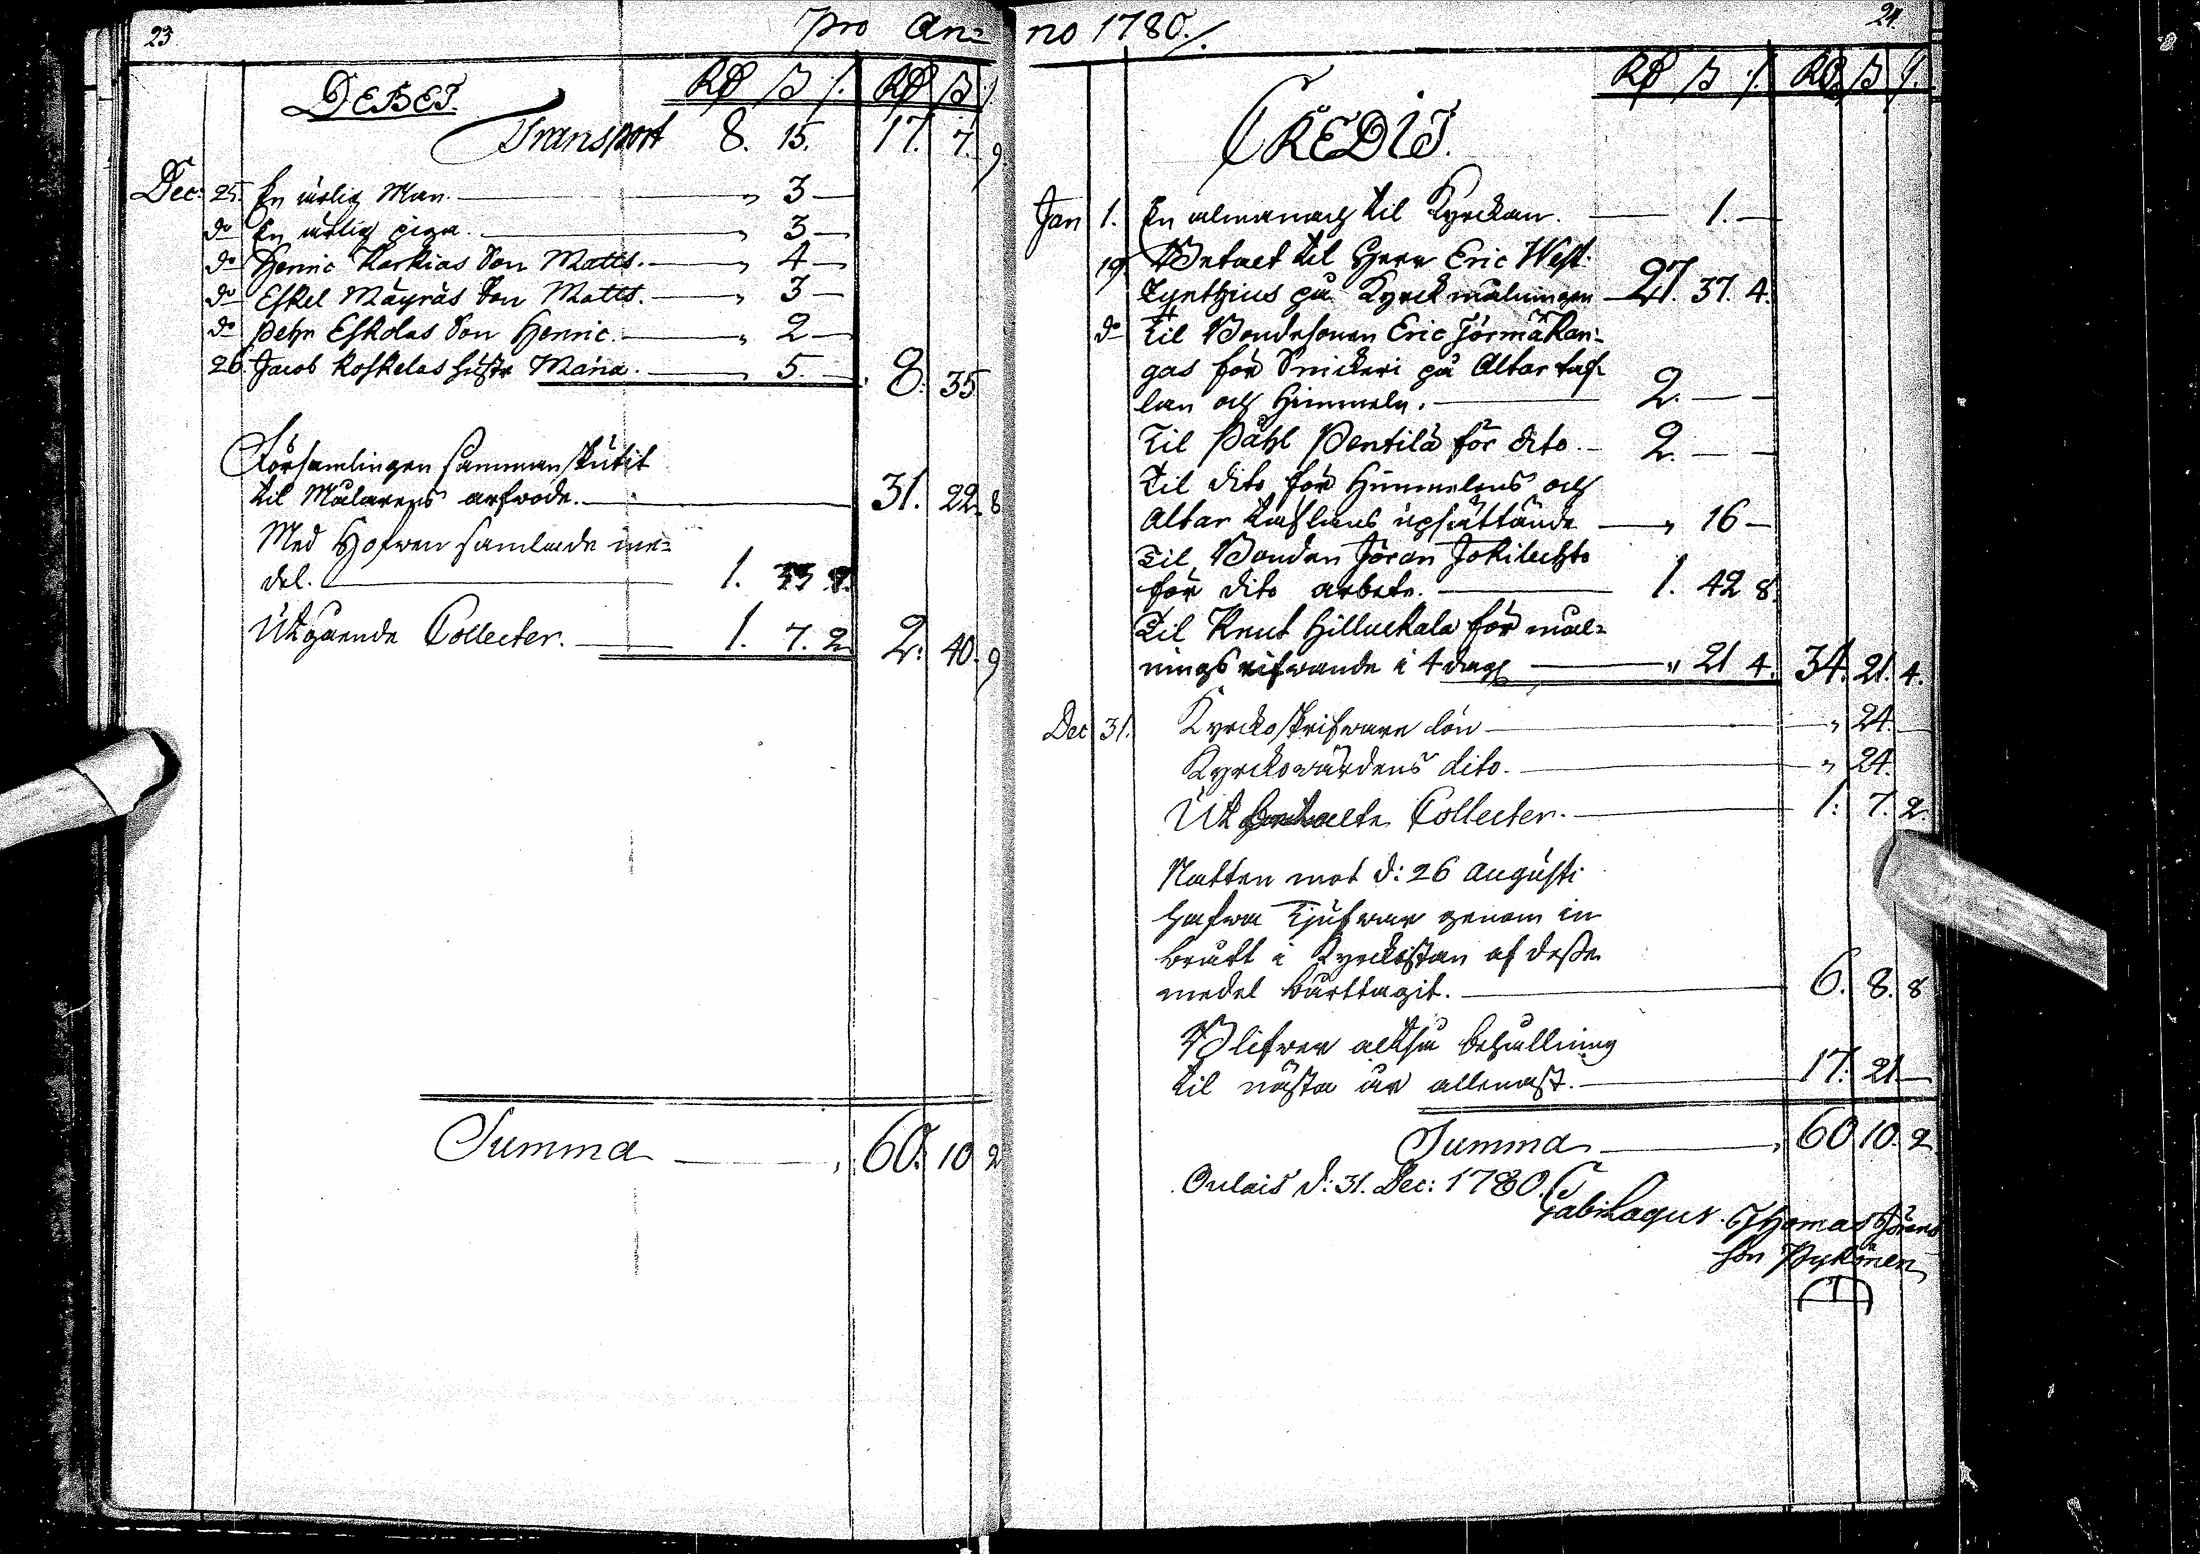 23
pro An=
DEBET.
Rd ß /. Rd ß /.
Transport 8. 15. 17. 7. 9.
Dec: 25. En ärlig Man. " 3 —
do En ärlig piga. " 3 —
do Henric Karkias Son Matts. " 4 —
do Eskel Mäyräs Son Matts. " 3 —
do Pehr Eskolas Son Henric. " 2 —
26. Jacob Koskelas hustr Maria. " 5. — 8. 35
Församlingen sammanskutit
til Målarens arfwode. 31. 22. 8
Med Hofwen samlade me=
del. 1. 33
Utgående Collecter. 1. 7. 2 2. 40. 9
Summa 60. 10 2
no 1780./.
24.
Rd ß /. Rd ß /.
CREDIT.
Jan 1. En almanach til Kyrckan. 1. —
19 Betalt til Herr Eric West=
zynthius på Kyrckmålningen 27. 37. 4.
do Til Bondesonen Eric Jörmäkan=
gas för Snickeri på Altar taf=
lan och Himmeln. 2. — —
Til Påhl Pentilä för dito. 2. — —
Til dito för Himmelens och
Altar taflans upsättände " 16 —
Til Bonden Jöran Jokilechto
för dito arbete. 1. 42 8.
Til Knut Hilluckala för mål=
nings rifwande i 4 dagr " 21 4. 34. 21. 4.
Dec 31. Kyrckoskrifware lön " 24. —
Kyrckowärdens dito. " 24.
Ut Collecter. 1. 7. 2
Natten mot d: 26 Augusti
hafwa tjufwar genom in
brått i Kyrckistan af desse
medel burttagit. 6. 8. 8
Blifwer altså behållning
til nästa år allenast. 17. 21 —
Summa 60 10. 2
Oulais d: 31. Dec: 1780.
Gab: Lagus. Thomas Jörans
son Pykönen